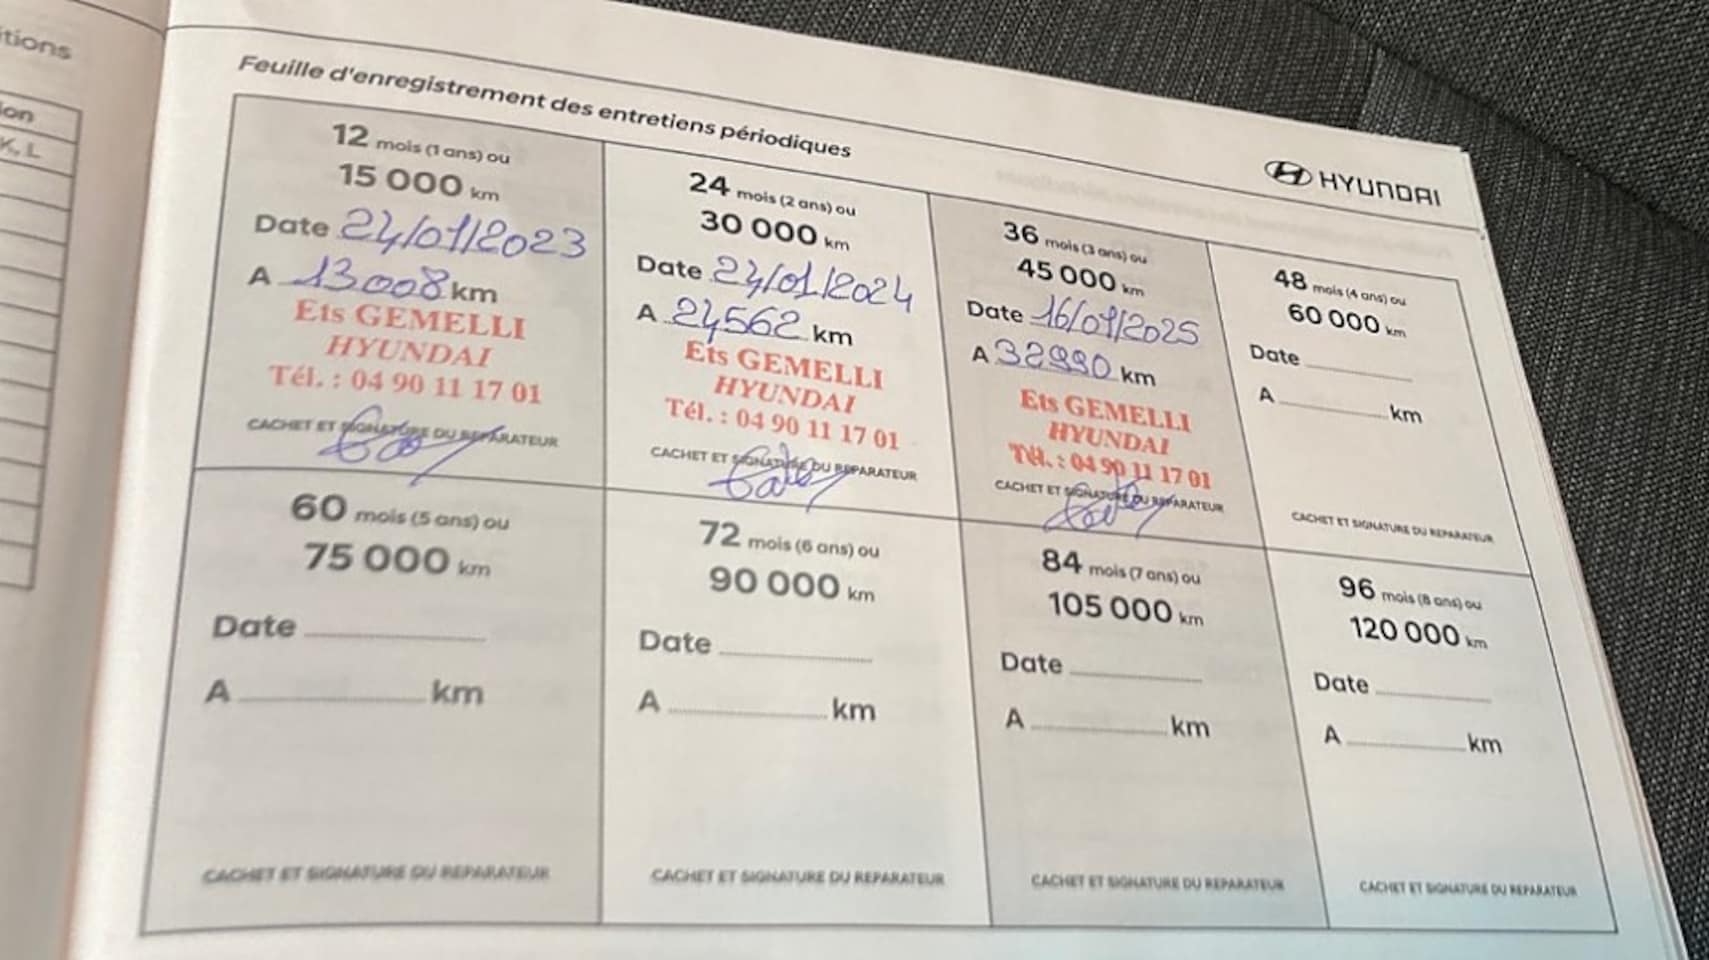 itions
on
K, L
Feuille d'enregistrement des entretiens périodiques
HYUNDAI
12 mois (1 ans) ou
15 000 km
Date 24/01/2023
A 13008 km
Ets GEMELLI
HYUNDAI
Tél. : 04 90 11 17 01
CACHET ET SIGNATURE DU REPARATEUR
24 mois (2 ans) ou
30 000 km
Date 24/01/2024
A 24562 km
Ets GEMELLI
HYUNDAI
Tél. : 04 90 11 17 01
CACHET ET SIGNATURE DU REPARATEUR
36 mois (3 ans) ou
45 000 km
Date 16/01/2025
A 32990 km
Ets GEMELLI
HYUNDAI
Tél. : 04 90 11 17 01
CACHET ET SIGNATURE DU REPARATEUR
48 mois (4 ans) ou
60 000 km
Date
A km
CACHET ET SIGNATURE DU REPARATEUR
60 mois (5 ans) ou
75 000 km
Date
A km
CACHET ET SIGNATURE DU REPARATEUR
72 mois (6 ans) ou
90 000 km
Date
A km
CACHET ET SIGNATURE DU REPARATEUR
84 mois (7 ans) ou
105 000 km
Date
A km
CACHET ET SIGNATURE DU REPARATEUR
96 mois (8 ans) ou
120 000 km
Date
A km
CACHET ET SIGNATURE DU REPARATEUR